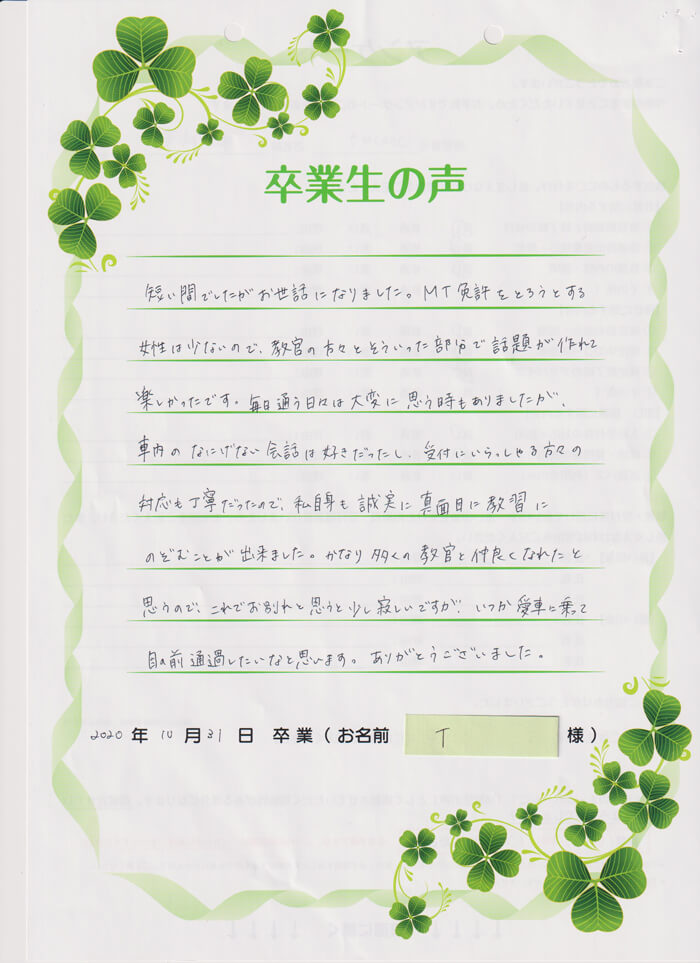 卒業生の声
短い間でしたがお世話になりました。MT免許をとろうとする
女性は少ないので、教官の方々とそういった部分で話題が作れて
楽しかったです。毎日通う日々は大変に思う時もありましたが、
車内のなにげない会話は好きだったし、受付にいらっしゃる方々の
対応も丁寧だったので、私自身も誠実に真面目に教習に
のぞむことが出来ました。かなり多くの教官と仲良くなれたと
思うので、これでお別れと思うと少し寂しいですが、いつか愛車に乗って
目の前通過したいなと思います。ありがとうございました。
2020年10月31日 卒業(お名前 T 様)